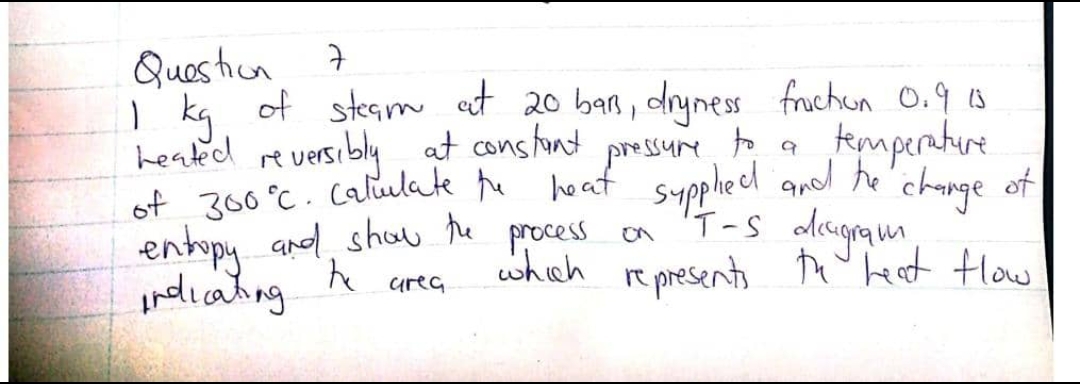 Question 7
1 kg of steam at 20 bars, dryness fraction 0.9 is
heated reversibly at constant pressure to a temperature
of 300°C. Calculate the heat supplied and the change of
entropy and show the process on T-S diagram
indicating the area which represents the heat flow